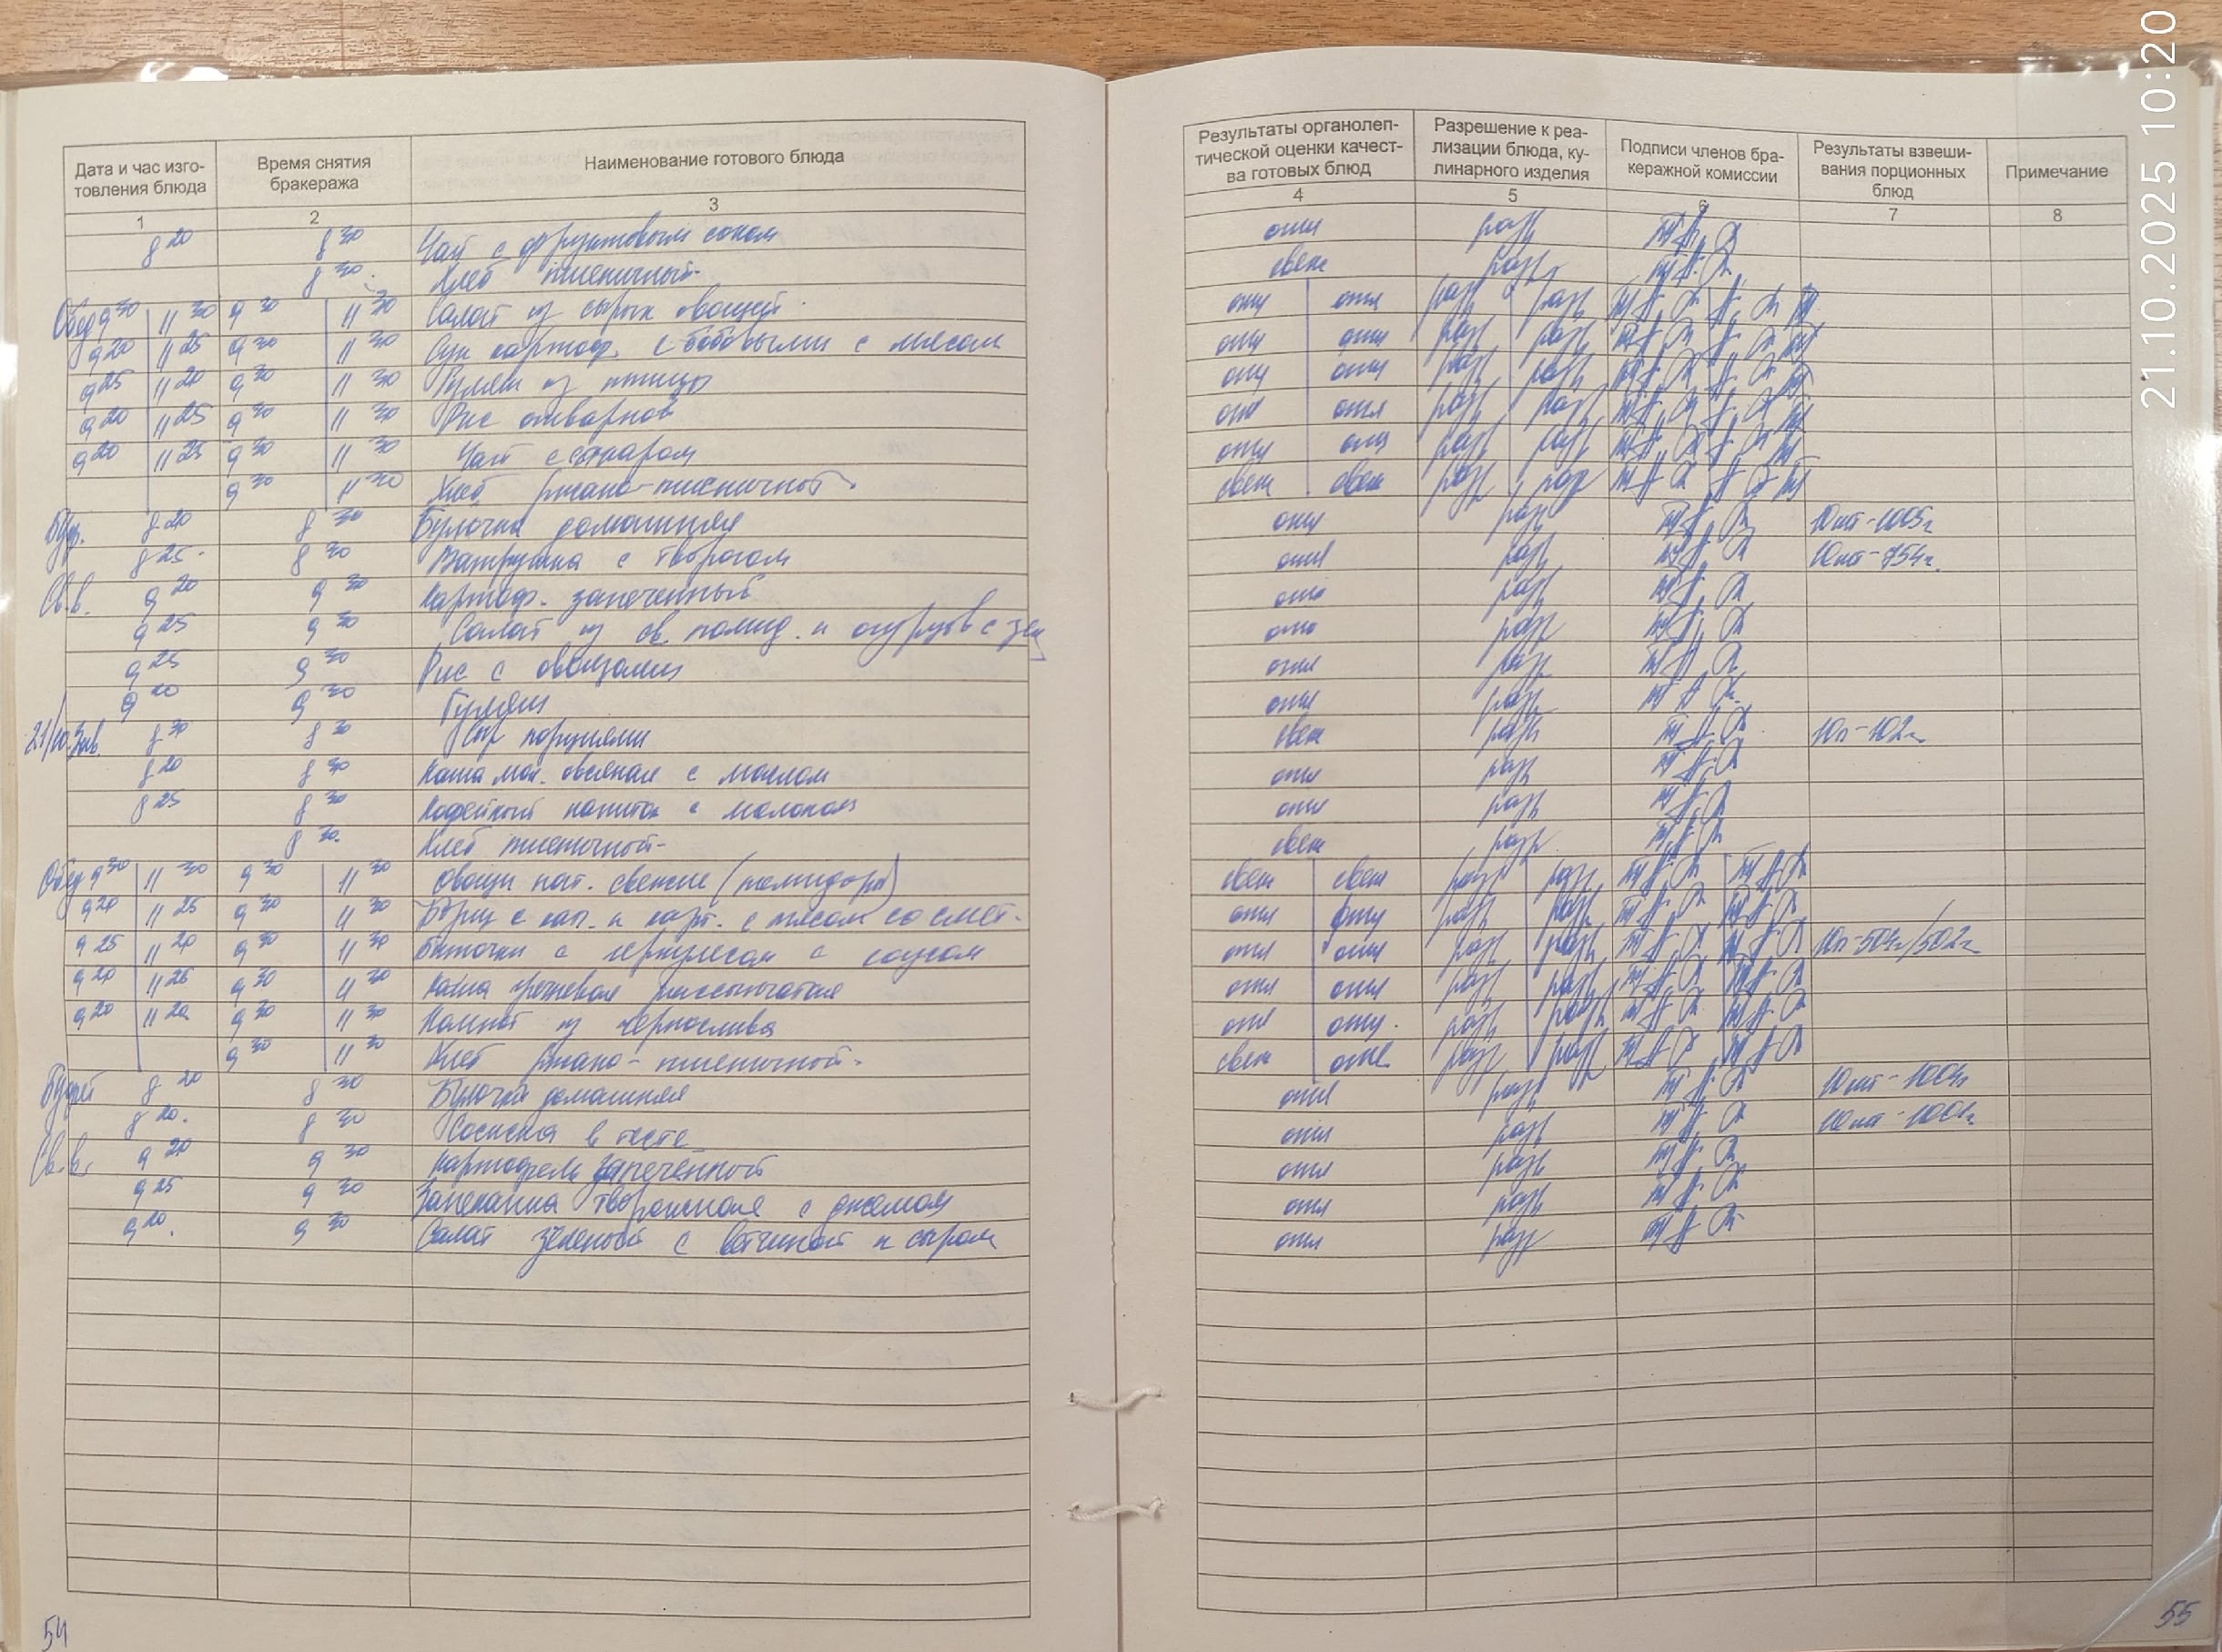 21.10.2025 10:20
Дата и час изго-
товления блюда
Время снятия
бракеража
Наименование готового блюда
1 2 3
8 20 8 30 Чай с фруктовым соком
8 30 Хлеб пшеничный
Обед 9 30 11 30 9 30 11 30 Салат из сырых овощей
9 20 11 25 9 30 11 30 Суп картоф. с бобовыми с мясом
9 25 11 20 9 30 11 30 Гуляш из птицы
9 20 11 25 9 30 11 30 Рис отварной
9 20 11 25 9 30 11 30 Чай с сахаром
9 30 11 30 Хлеб ржано-пшеничной
Буф. 8 20 8 30 Булочка домашняя
8 25 8 30 Ватрушка с творогом
Св.в. 9 20 9 30 Картоф. запеченный
9 25 9 30 Салат из св. помид. и огурцов с зел
9 25 9 30 Рис с овощами
9 20 9 30 Гуляш
21/10 Зав. 8 30 8 30 Сыр порциями
8 20 8 30 Каша мол. овсяная с маслом
8 25 8 30 Кофейный напиток с молоком
8 30 Хлеб пшеничной
Обед 9 30 11 30 9 30 11 30 Овощи нат. свежие (помидоры)
9 20 11 25 9 30 11 30 Борщ с кап. и карт. с мясом со смет.
9 25 11 20 9 30 11 30 Биточки с геркулесом с соусом
9 20 11 25 9 30 11 30 Каша гречневая рассыпчатая
9 20 11 20 9 30 11 30 Компот из чернослива
9 30 11 30 Хлеб ржано-пшеничной
Буфет 8 20 8 30 Булочка домашняя
8 20 8 30 Сосиска в тесте
Св.в. 9 20 9 30 Картофель запеченной
9 25 9 30 Запеканка творожная с джемом
9 20 9 30 Салат зеленый с ветчиной и сыром
54
Результаты органолеп-
тической оценки качест-
ва готовых блюд
Разрешение к реа-
лизации блюда, ку-
линарного изделия
Подписи членов бра-
керажной комиссии
Результаты взвеши-
вания порционных
блюд
Примечание
4 5 6 7 8
отл разр
свеж разр
отл отл разр разр
отл отл разр разр
отл отл разр разр
отл отл разр разр
отл отл разр разр
свеж свеж разр разр
отл разр 10шт-1005г
отл разр 10шт-754г.
отл разр
отл разр
отл разр
отл разр
свеж разр 10п-102г
отл разр
отл разр
свеж разр
свеж свеж разр разр
отл отл разр разр
отл отл разр разр 10п-504г/502г
отл отл разр разр
отл отл разр разр
свеж отл разр разр
отл разр 10шт-1004г
отл разр 10шт-1001г
отл разр
отл разр
отл разр
55